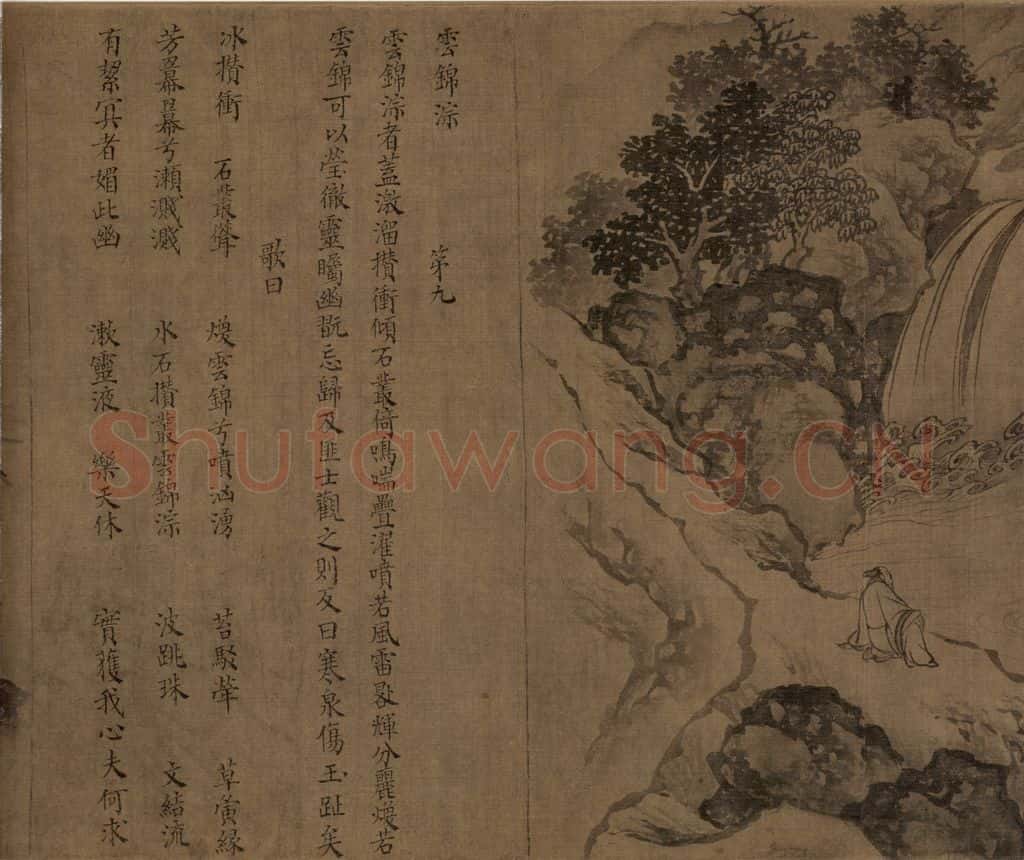 雲錦淙 第九
雲錦淙者蓋激溜攢衝傾石叢倚鳴湍疊濯噴若風雷輝分麗煥若
雲錦可以瑩徹靈矚幽翫忘歸及匪士觀之則反曰寒泉傷玉趾矣
歌曰
水攢衝 石叢聳 煥雲錦兮噴洶湧 苔駁犖 草夤緣
芳冪冪兮瀨濺濺 水石攢叢雲錦淙 波跳珠 文結流
有絜冥者媚此幽 漱靈液 樂天休 實獲我心夫何求
Shufawang.cn